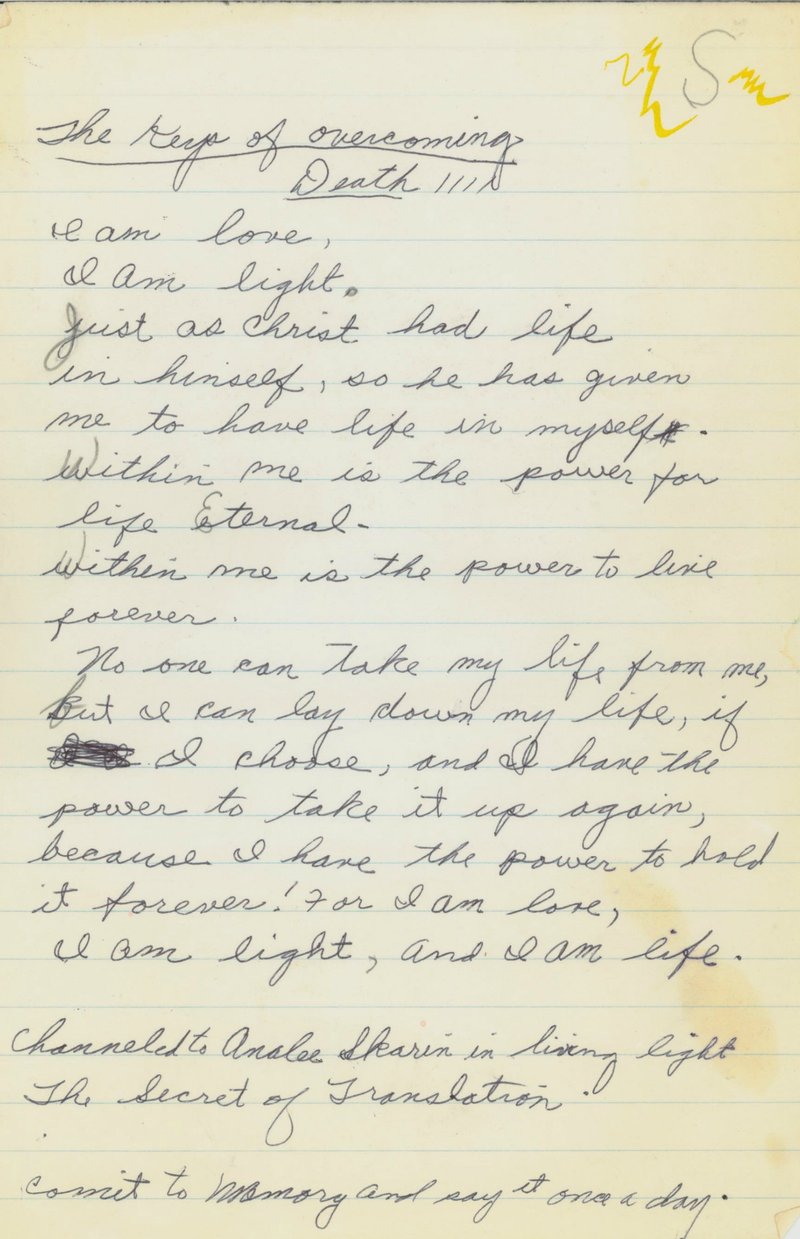 S
The Keys of overcoming
Death !!!!
I am love,
I Am light.
Just as Christ had life
in himself, so he has given
me to have life in myself.
Within me is the power for
life Eternal-
Within me is the power to live
forever.
No one can take my life from me,
but I can lay down my life, if
I choose, and I have the
power to take it up again,
because I have the power to hold
it forever! For I am love,
I am light, and I am life.
Channeled to Analee Skarin in living light
The Secret of Translation.
comit to Memory and say it once a day.